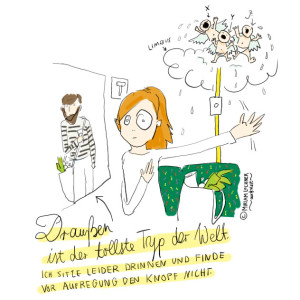 X Y Y
LIMBUS
T
Draußen
ist der tollste Typ der Welt
ICH SITZE LEIDER DRINNEN UND FINDE
VOR AUFREGUNG DEN KNOPF NICHT